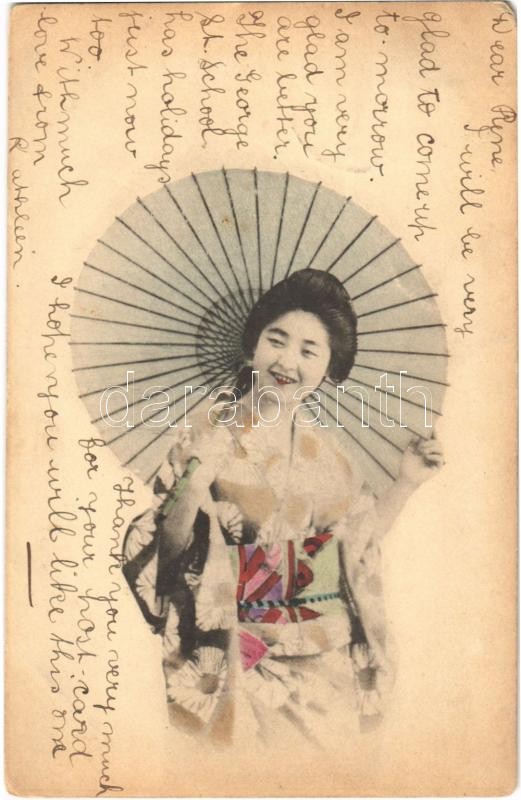 Dear Rene,
I will be very
glad to come up
to-morrow.
I am very
glad you
are better.
The George
St. School
has holidays
just now
too.
With much
love from
Kathleen.
Thank you very much
for your post-card
I hope you will like this one
darabanth